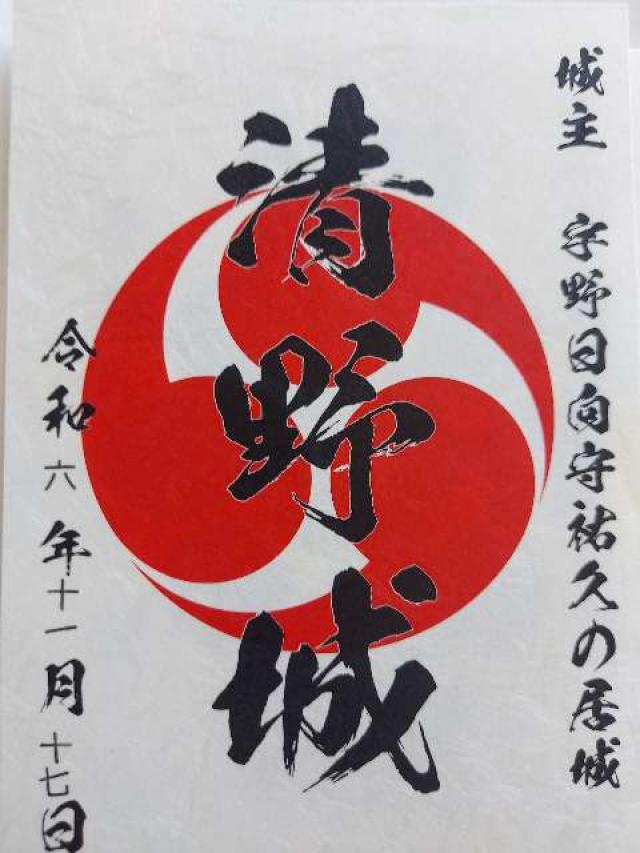 城主 宇野日向守祐久の居城
清野城
令和六年十一月十七日